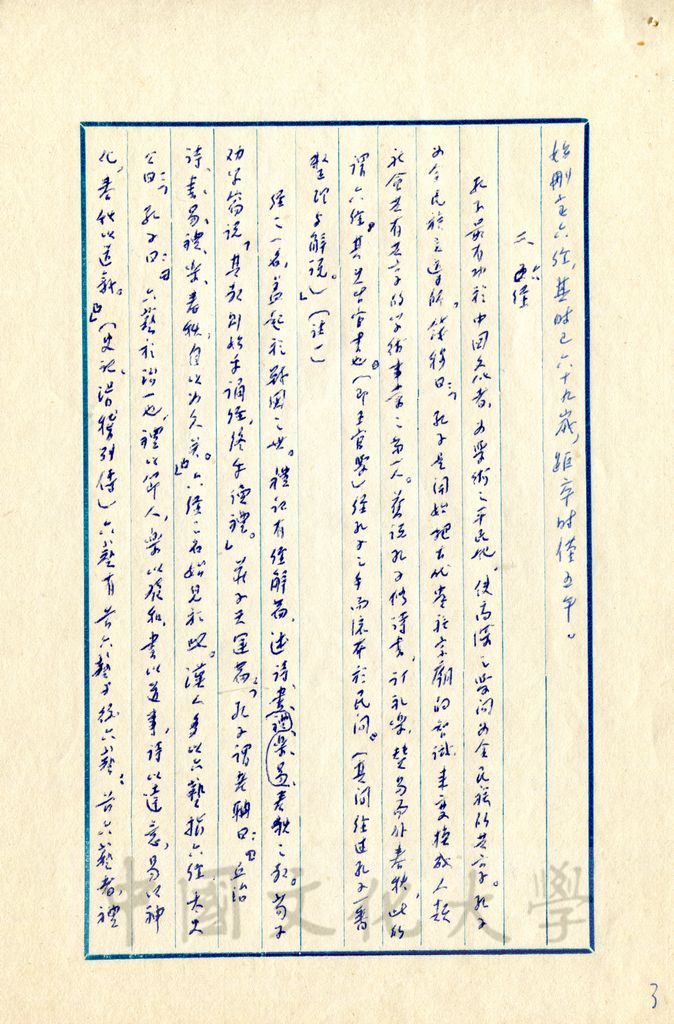 始刪定六經，其時已六十九歲，距卒時僅五年。
二 六經
孔子最有功於中國文化者，為學術之平民化，使高深之學問為全民族所共享。孔子
為全民族之導師。錢穆曰：「孔子是開始把古代貴族宗廟的智識來變換成人類
社會共有共享的學術事業之第一人。舊說孔子修詩書，訂禮樂，贊易而作春秋，此所
謂六經。其先皆官書也（即王官學）經孔子之手而流布於民間。（其間經過孔子一番
整理與解說。」（註一）
經之一名，蓋起於戰國之世。禮記有經解篇，述詩、書、禮、樂、易、春秋之教。荀子
勸學篇說「其數則始乎誦經，終乎讀禮。」莊子天運篇：「孔子謂老聃曰：『丘治
詩、書、易、禮、樂、春秋，自以為久矣。』六經之名始見於此。漢人多以六藝指六經太史
公曰：「孔子曰：『六藝於治一也，禮以節人，樂以發和，書以道事，詩以達意，易以神
化，春秋以道義。』」（史記、滑稽列傳）六藝有前六藝與後六藝：前六藝者，禮
中國文化大學
3